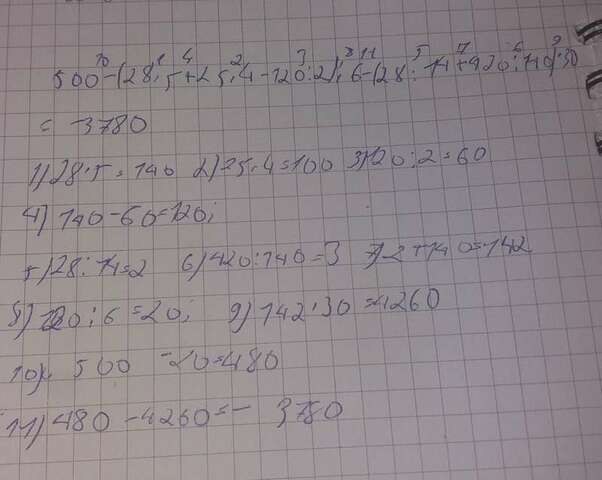 10 1 4 2 3 8 11 5 7 6 9
500-(28·5+25·4-120:2):6-(28:14+420:140)·30
= 3780
1) 28·5=140 2) 25·4=100 3) 120:2=60
4) 140-60=120;
5) 28:14=2 6) 420:140=3 7) 2+140=142
8) 120:6=20; 9) 142·30=4260
10) 500 -20=480
11) 480-4260=- 3780